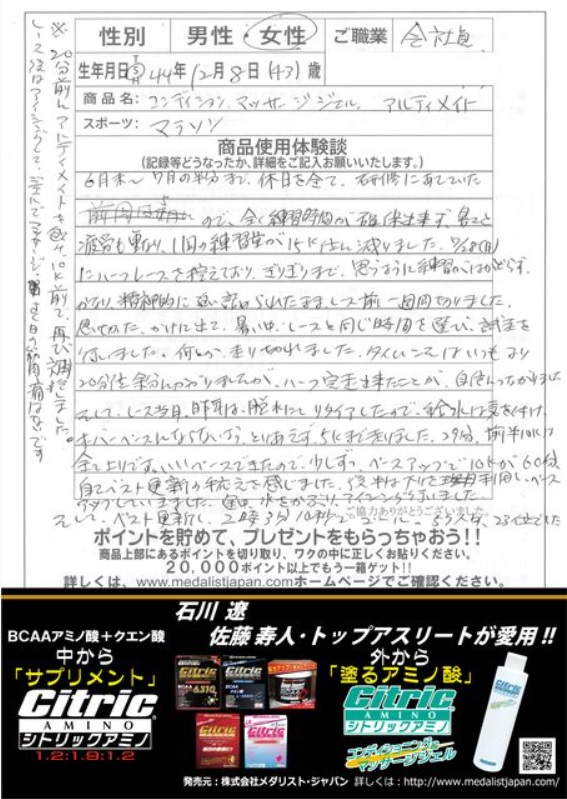 性別 男性・女性 ご職業 会社員
生年月日 TSH 44年12月8日(43)歳
商品名：コンディション.マッサージジェル. アルティメイト
スポーツ：マラソン
商品使用体験談
(記録等どうなったか、詳細をご記入お願いいたします。)
6月末〜7月の半分まで、休日を全て、研修にあてていた
ので、全く練習時間が確保出来ず、暑さと
疲労も重なり、1回の練習量が15kほどに減りました。7/28(日)
にハーフレースを控えており、ぎりぎりまで、思うように練習がはかどらず、
かなり、精神的に追い詰められたまま、レース前一週間切りました。
思い切った、かけに出て、暑い中、レースと同じ時間を選び、試走を
行いました。何とか、走り切れました。タイムこそはいつもより
20分ほど余分にかかりましたが、ハーフ完走出来たことが、自信につながりました
そして、レース当日、昨年は、脱水にてリタイアしたので、給水には気を付け、
オーバーペースにならないよう、とりあえず、5kまで走りました。29分、前半10kは
全て上りです。いいペースできたので、少しずつ、ペースアップで10kが60分、
自己ベスト更新の手応えを感じました。後半は下りを利用し、ペース
アップしていきました。水をかぶり、アイシングも
ご協力ありがとうございました。
そして、ベスト更新し、2時3分10秒でゴール。 23位でした
※20分前にアルティメイトを 10k前で、再び補給しました。
レース後はアイシングして、ジェルでマッサージ、 日の筋肉痛はないです
ポイントを貯めて、プレゼントをもらっちゃおう!!
商品上部にあるポイントを切り取り、ワクの中に正しくお貼りください。
20,000ポイント以上でもう一箱ゲット!!
詳しくは、www.medalistjapan.comホームページでご確認ください。
石川 遼
佐藤 寿人・トップアスリートが愛用!!
BCAAアミノ酸＋クエン酸
中から
「サプリメント」
Citric
AMINO
シトリックアミノ
1:2:1:9:1:2
外から
「塗るアミノ酸」
Citric
AMINO
シトリックアミノ
コンディショニング
マッサージジェル
発売元：株式会社メダリスト・ジャパン 詳しくは：http://www.medalistjapan.com/